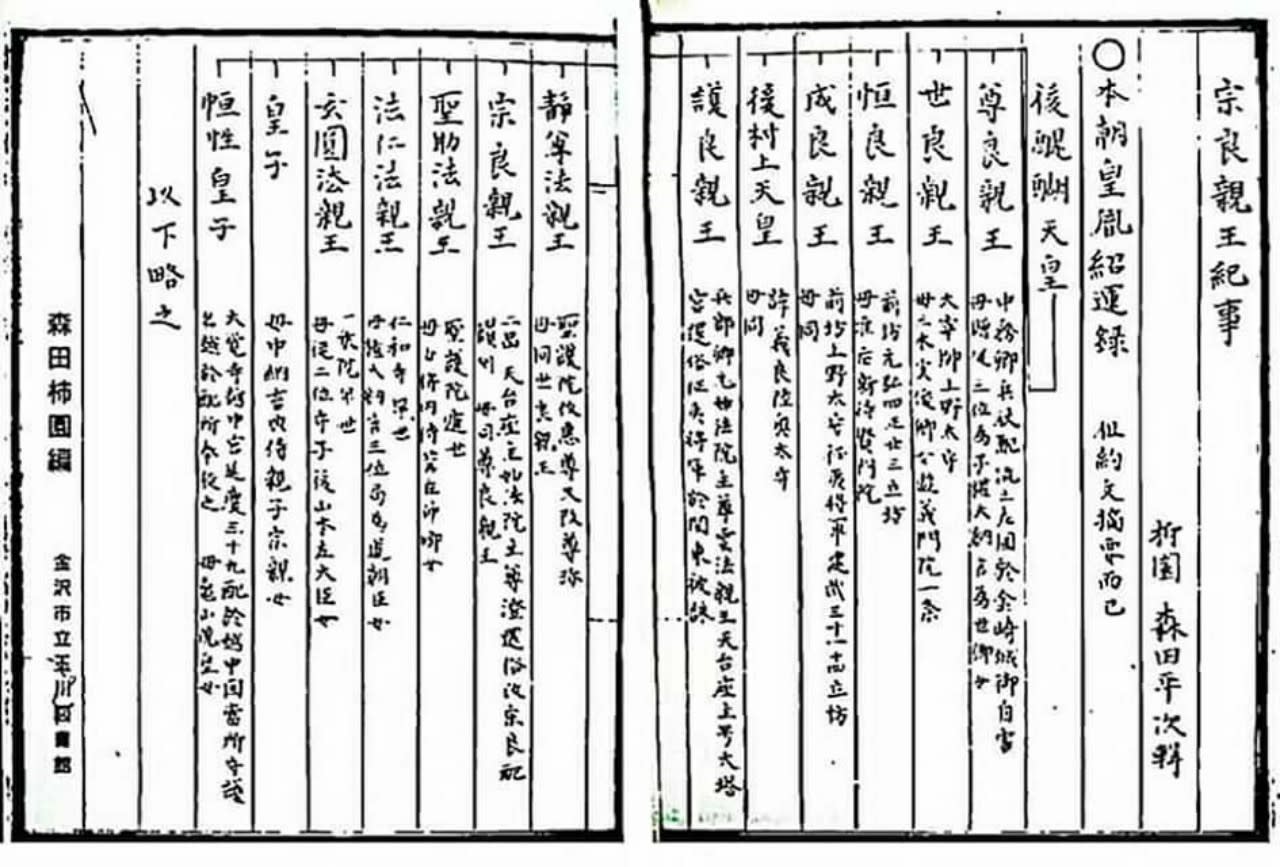 宗良親王紀事
柿園 森田平次輯
○本朝皇胤紹運録 但約文摘要而已
後醍醐天皇
尊良親王 中務卿 兵敗 配流土左国 於金崎城御自害
母贈従三位為子 権大納言為世卿女
世良親王 大宰帥 上野太守
母 実俊卿女 遊義門院一条
恒良親王 前坊 元弘四正廿三立坊
母准后新待賢門院
成良親王 前坊 上野太守 征夷将軍 建武三十一十四立坊
母同
後村上天皇 諱義良 陸奥太守
母同
護良親王 兵部卿 元妙法院主尊雲法親王 天台座主 号大塔
宮 還俗 征夷将軍 於関東被誅
静尊法親王 聖護院 改恵尊 又改尊珍
母同世良親王
宗良親王 二品 天台座主 妙法院主 尊澄 還俗改宗良 配
讃州 母同尊良親王
聖助法親王 聖護院 遁世
母少将内侍 菅在仲卿女
法仁法親王 仁和寺 早世
母権大納言三位局 為道朝臣女
玄圓法親王 一乗院 早世
母従二位守子 後山本左大臣女
皇子 母中納言内侍親子 宗親女
恒性皇子 大覚寺 配於越中国 当所守護
名越於配所令殺之 母亀山院皇女
以下略之
森田柿園編 金沢市立玉川図書館